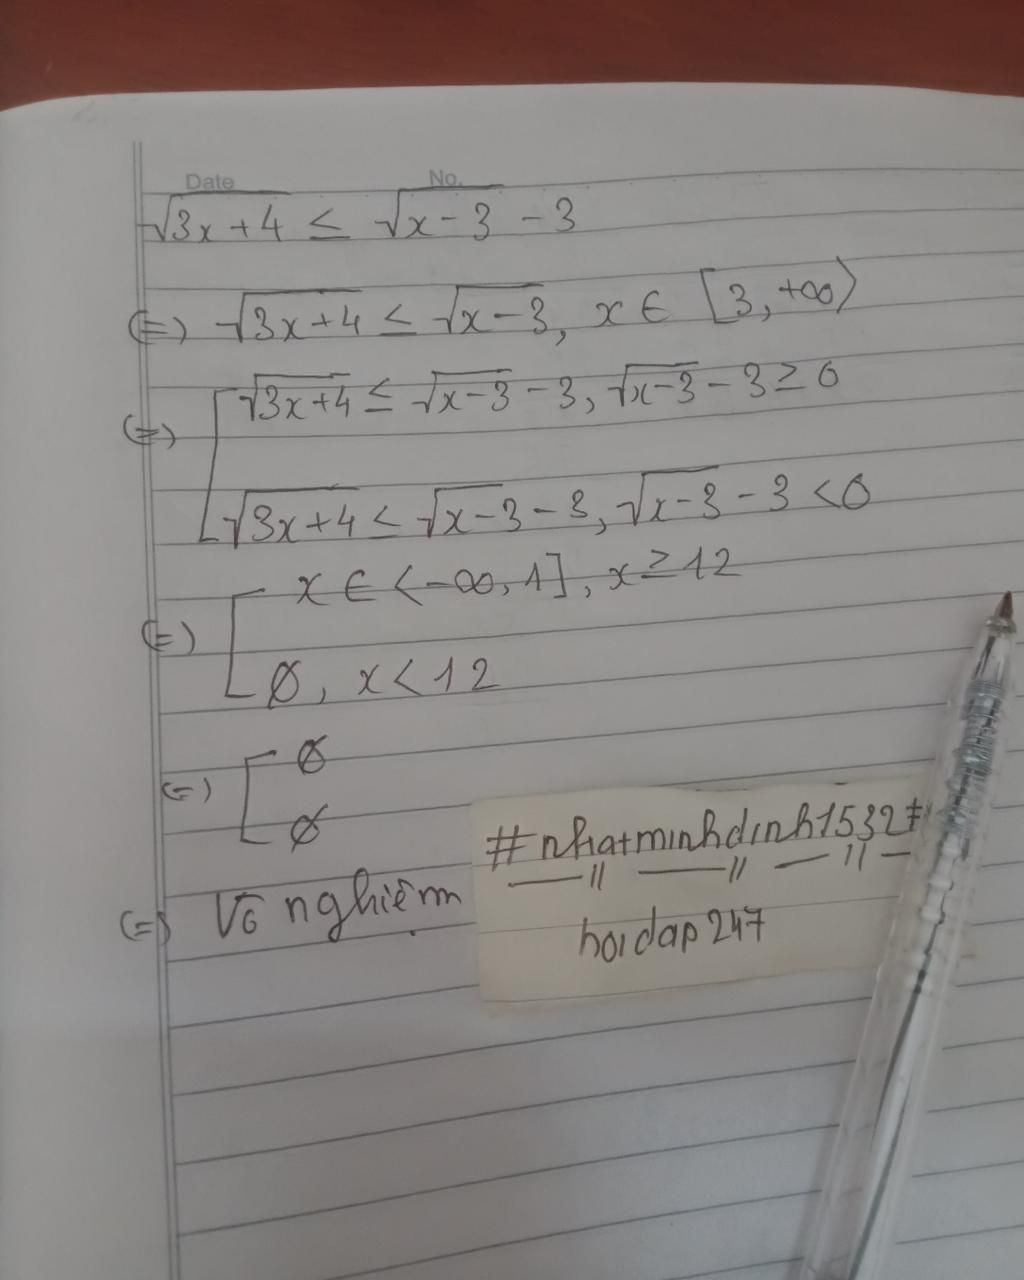 Date No.
√3x+4 ≤ √x-3 - 3
(=) √3x+4 ≤ √x-3, x ∈ [3, +∞)
(=) [ √3x+4 ≤ √x-3 - 3, √x-3 - 3 ≥ 0
√3x+4 ≤ √x-3 - 3, √x-3 - 3 < 0
(=) [ x ∈ <-∞, 1], x ≥ 12
∅, x < 12
(=) [ ∅
∅
(=) Vô nghiệm
#nhatminhdinh1532
hoidap247